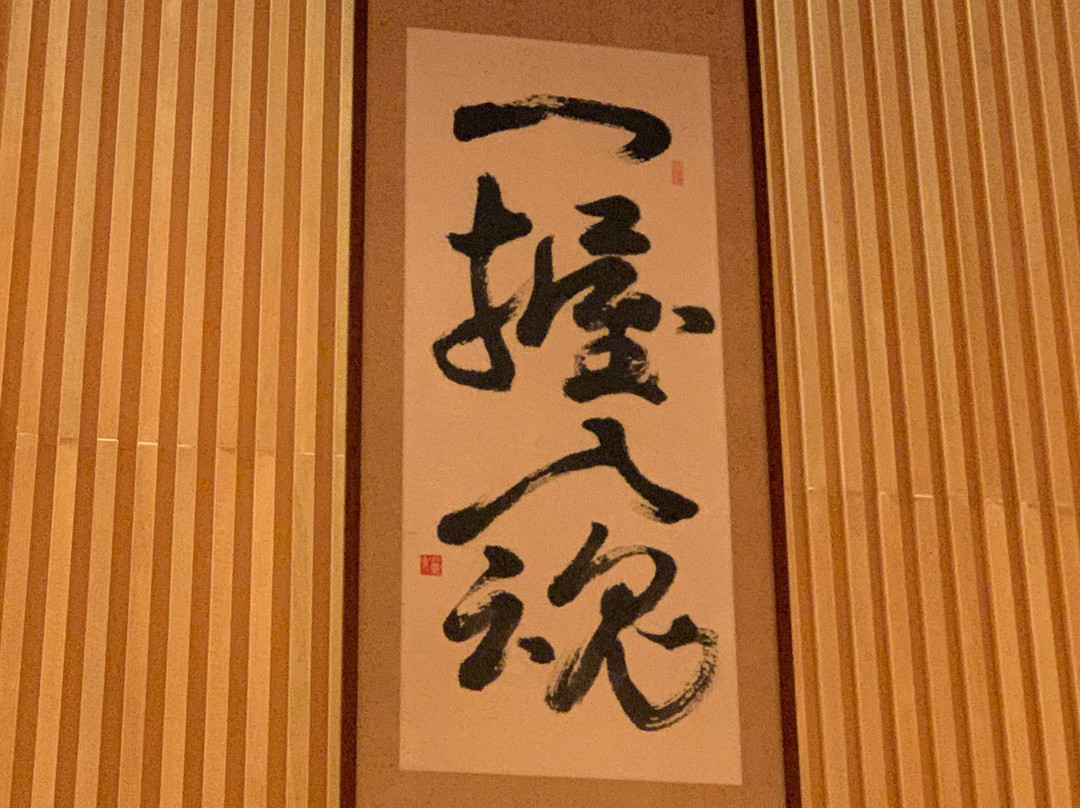 一握入魂